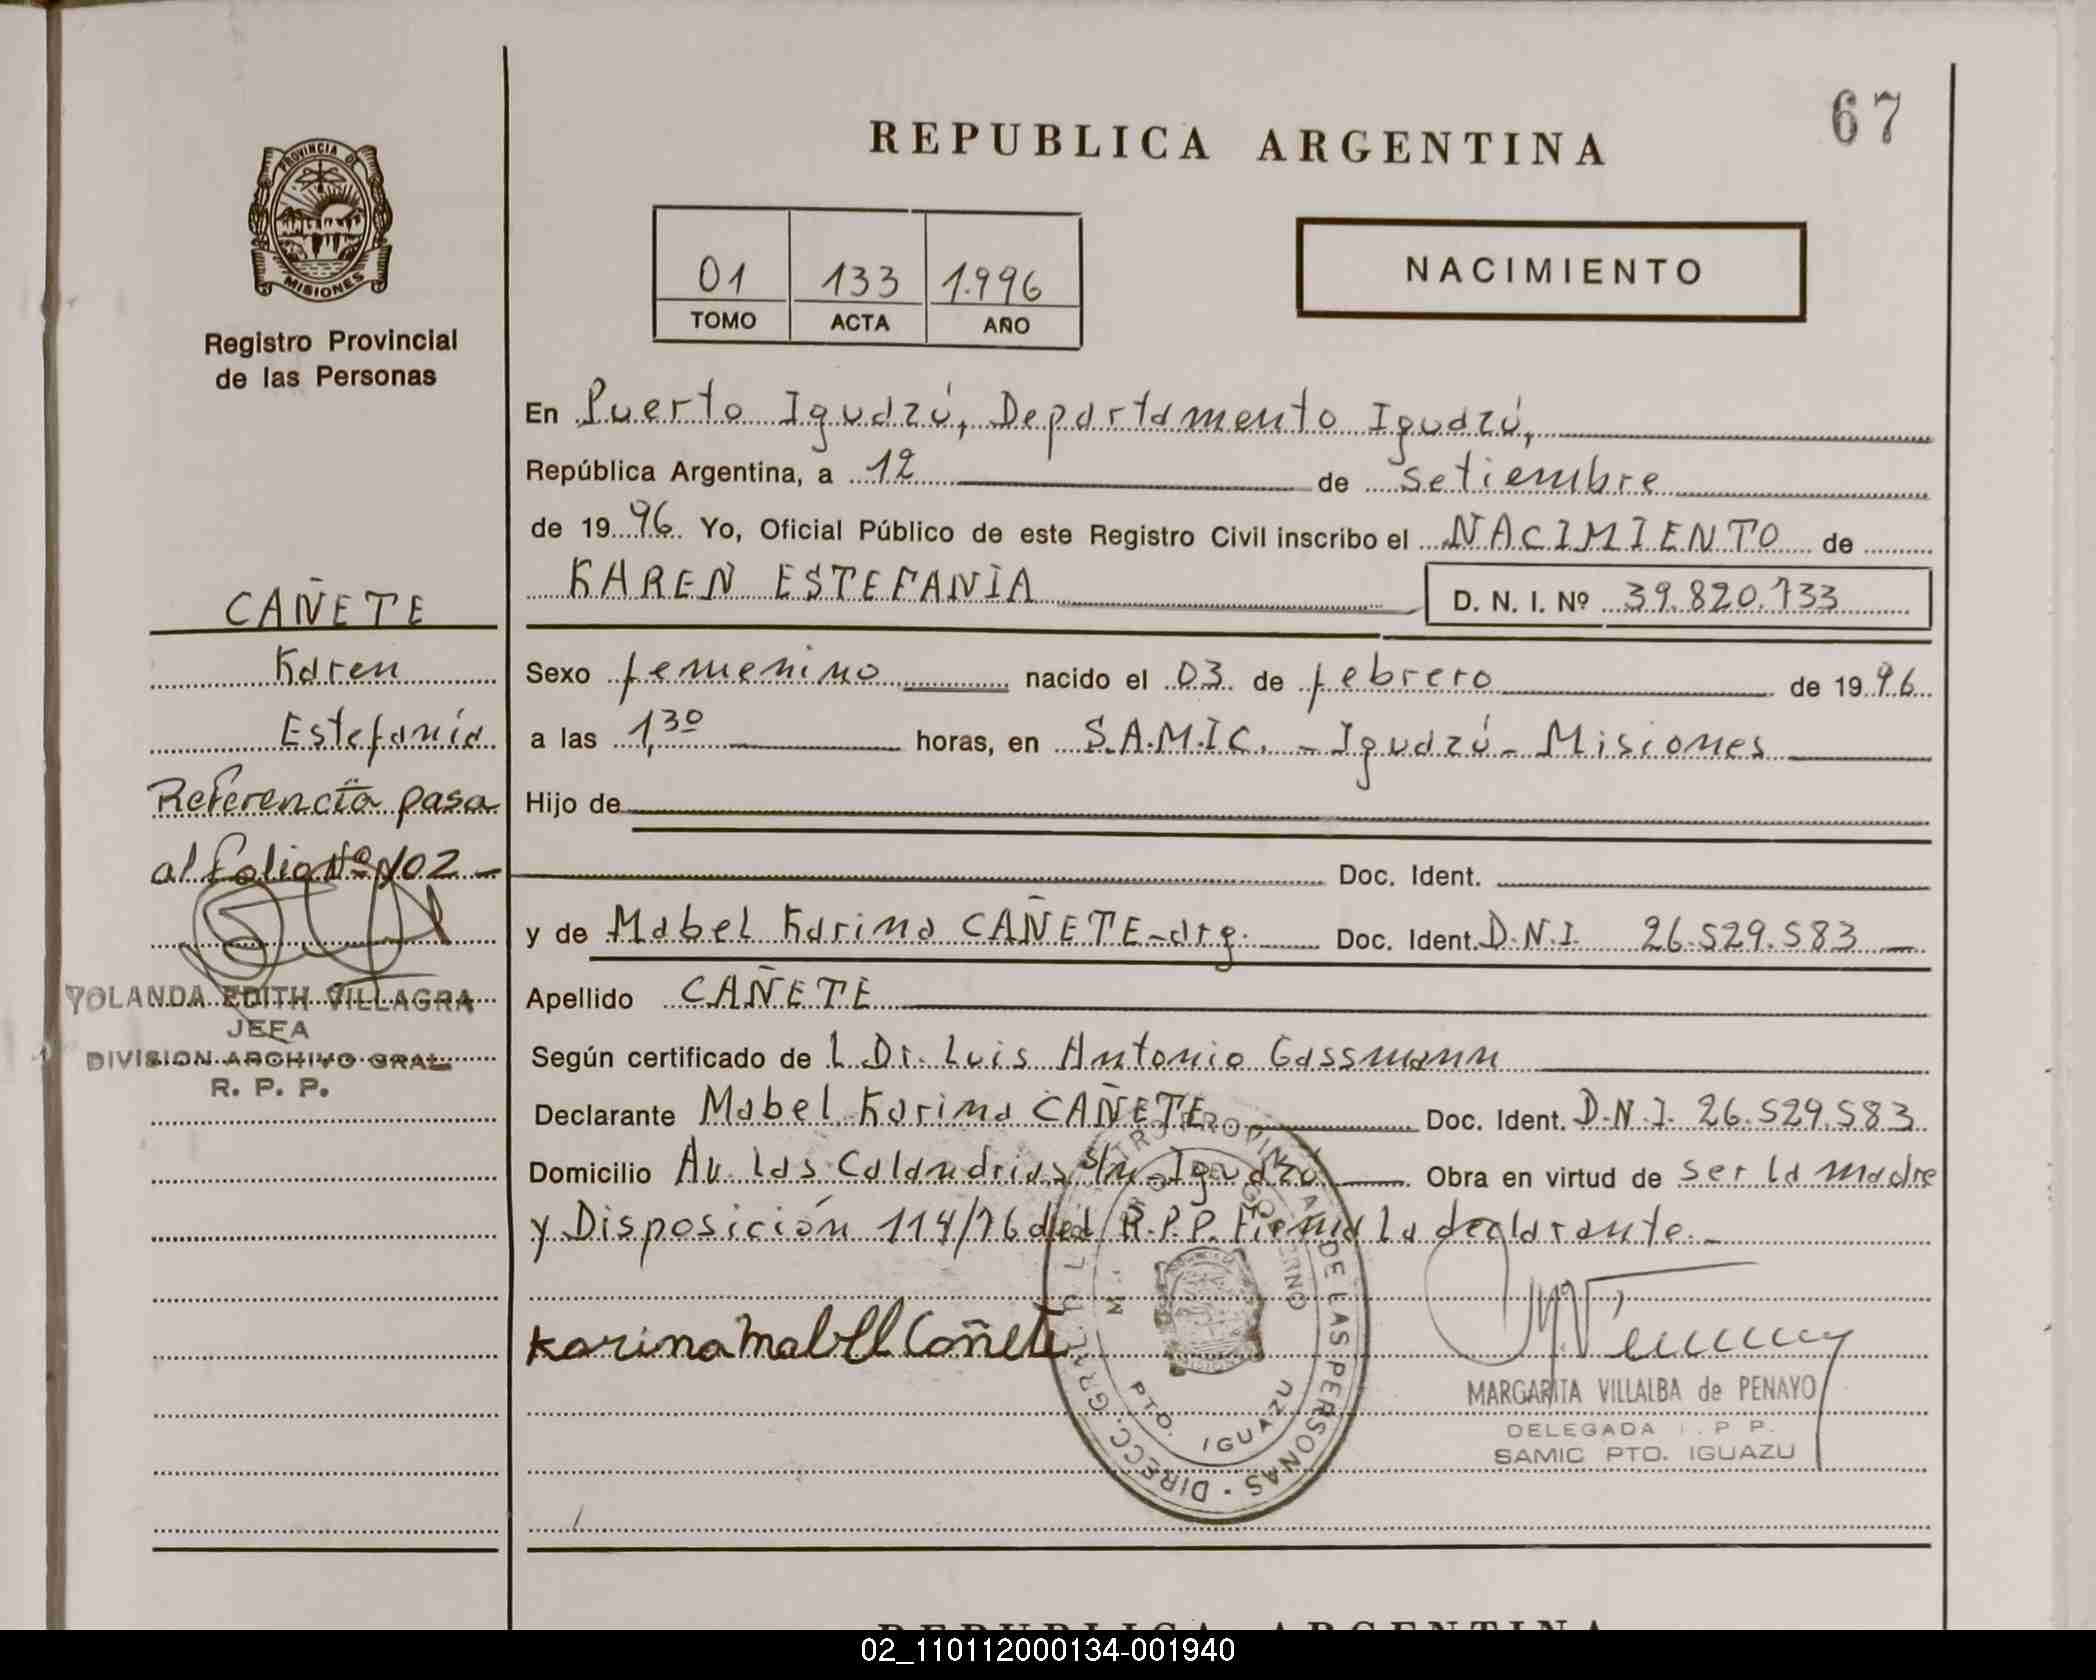 67
REPUBLICA ARGENTINA
PROVINCIA DE
MISIONES
Registro Provincial
de las Personas
01 133 1.996
TOMO ACTA AÑO
NACIMIENTO
En Puerto Iguazú, Departamento Iguazú,
República Argentina, a 12 de setiembre
de 1996 Yo, Oficial Público de este Registro Civil inscribo el NACIMIENTO de
KAREN ESTEFANÍA D. N. I. Nº 39.820.133
CAÑETE
Karen
Estefanía
Referencia pasa
al folio Nº 102 -
YOLANDA EDITH VILLAGRA
JEFA
DIVISION ARCHIVO GRAL
R. P. P.
Sexo femenino nacido el 03 de febrero de 1996
a las 1,30 horas, en S.A.M.I.C. - Iguazú - Misiones
Hijo de
Doc. Ident.
y de Mabel Karina CAÑETE - arg. Doc. Ident. D.N.I. 26.529.583
Apellido CAÑETE
Según certificado de L Dr. Luis Antonio Gassmann
Declarante Mabel Karina CAÑETE Doc. Ident. D.N.I. 26.529.583
Domicilio Av. Las Calandrias s/n - Iguazú Obra en virtud de ser la madre
y Disposición 114/76 del R.P.P. Firma la declarante.-
Karina Mabel Cañete
PTO. IGUAZU
MARGARITA VILLALBA de PENAYO
DELEGADA P. P.
SAMIC PTO. IGUAZU
REPUBLICA ARGENTINA
02_110112000134-001940